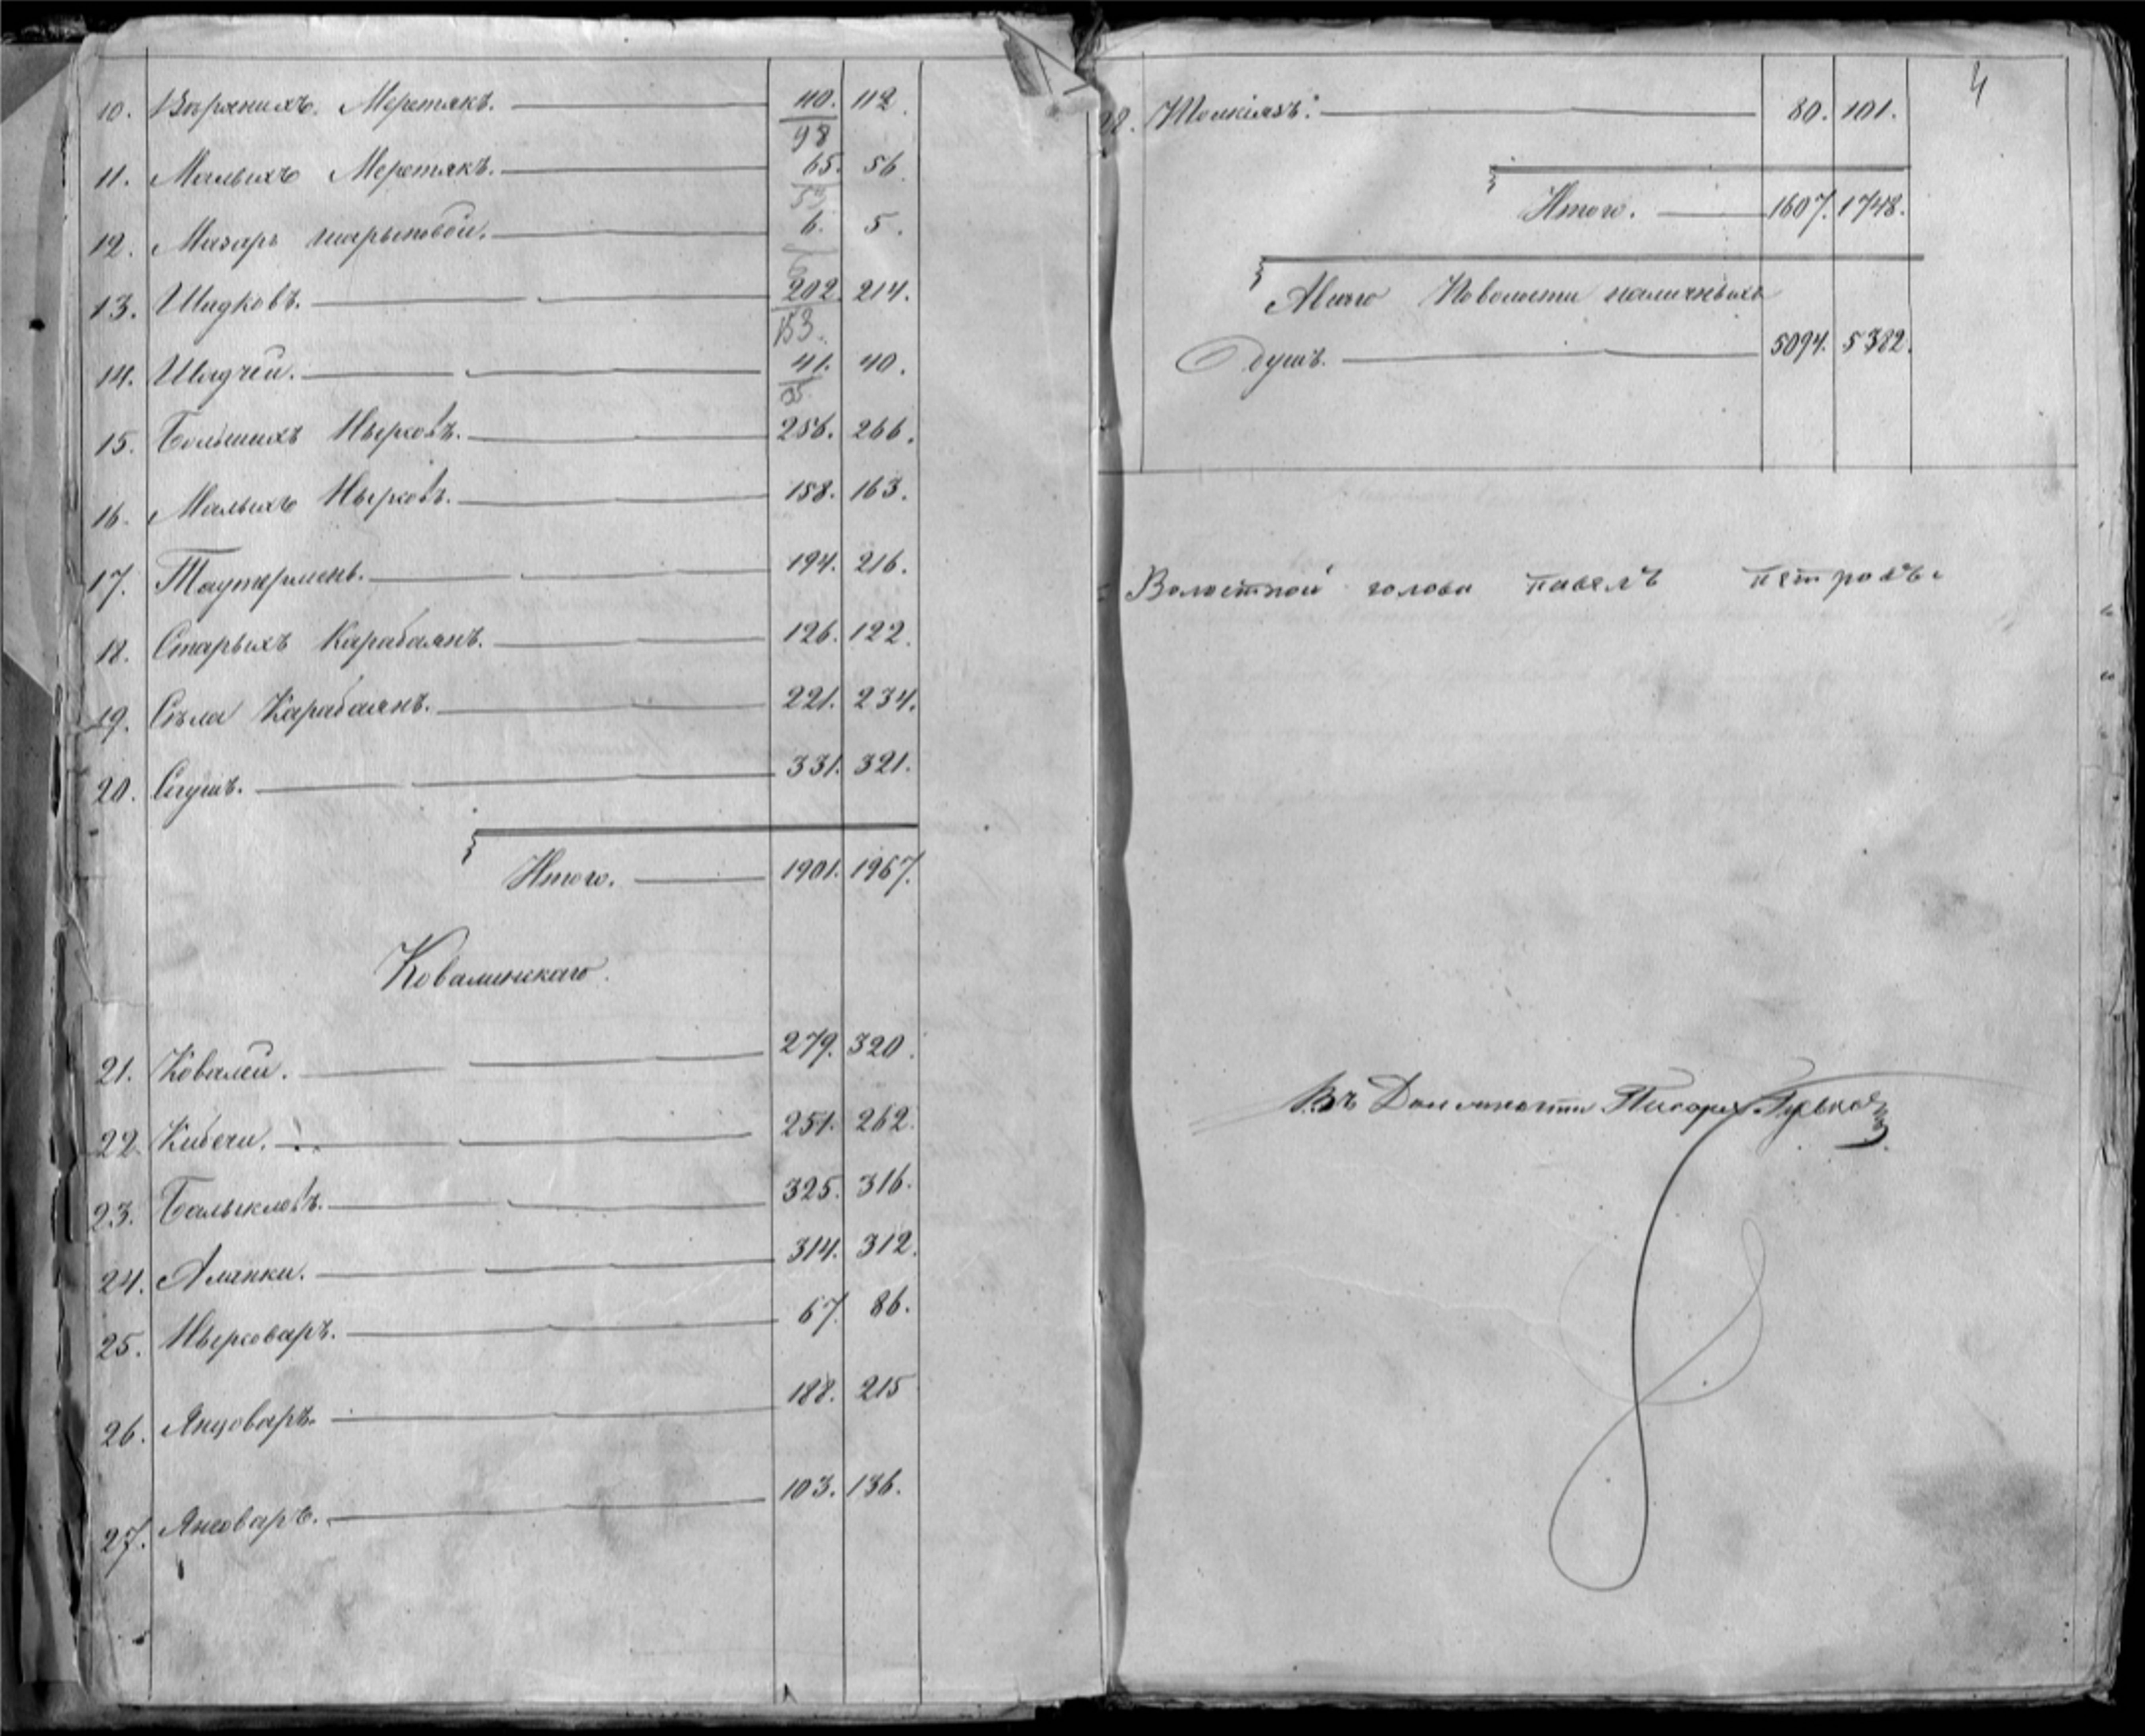 10. Верхнихъ Меретякъ. 110. 112.
98
11. Малыхъ Меретякъ. 65. 56.
12. Мазаръ 6. 5.
6
13. Шадковъ. 202. 214.
153.
14. Шадчей. 41. 40.
15. Большихъ Нырсовъ. 256. 266.
16. Малыхъ Нырсовъ. 158. 163.
17. Таутерминь. 194. 216.
18. Старыхъ Карабаянъ. 126. 122.
19. Съла Карабаянъ. 221. 234.
20. 331. 321.
Итого. 1901. 1967.
Ковалинскаго.
21. Ковалей. 279. 320.
22. Кибечи. 251. 262.
23. Балыкловъ. 325. 316.
24. Аланки. 314. 312.
25. Нырсоваръ. 67. 86.
26. Янцоваръ. 188. 215
27. Янсоваръ. 103. 136.
4
28. 80. 101.
Итого. 1607. 1748.
Авсего Поволости наличныхъ
Душъ. 5094. 5382.
Волостной голова павелъ петровъ.
Въ Должности Писаря